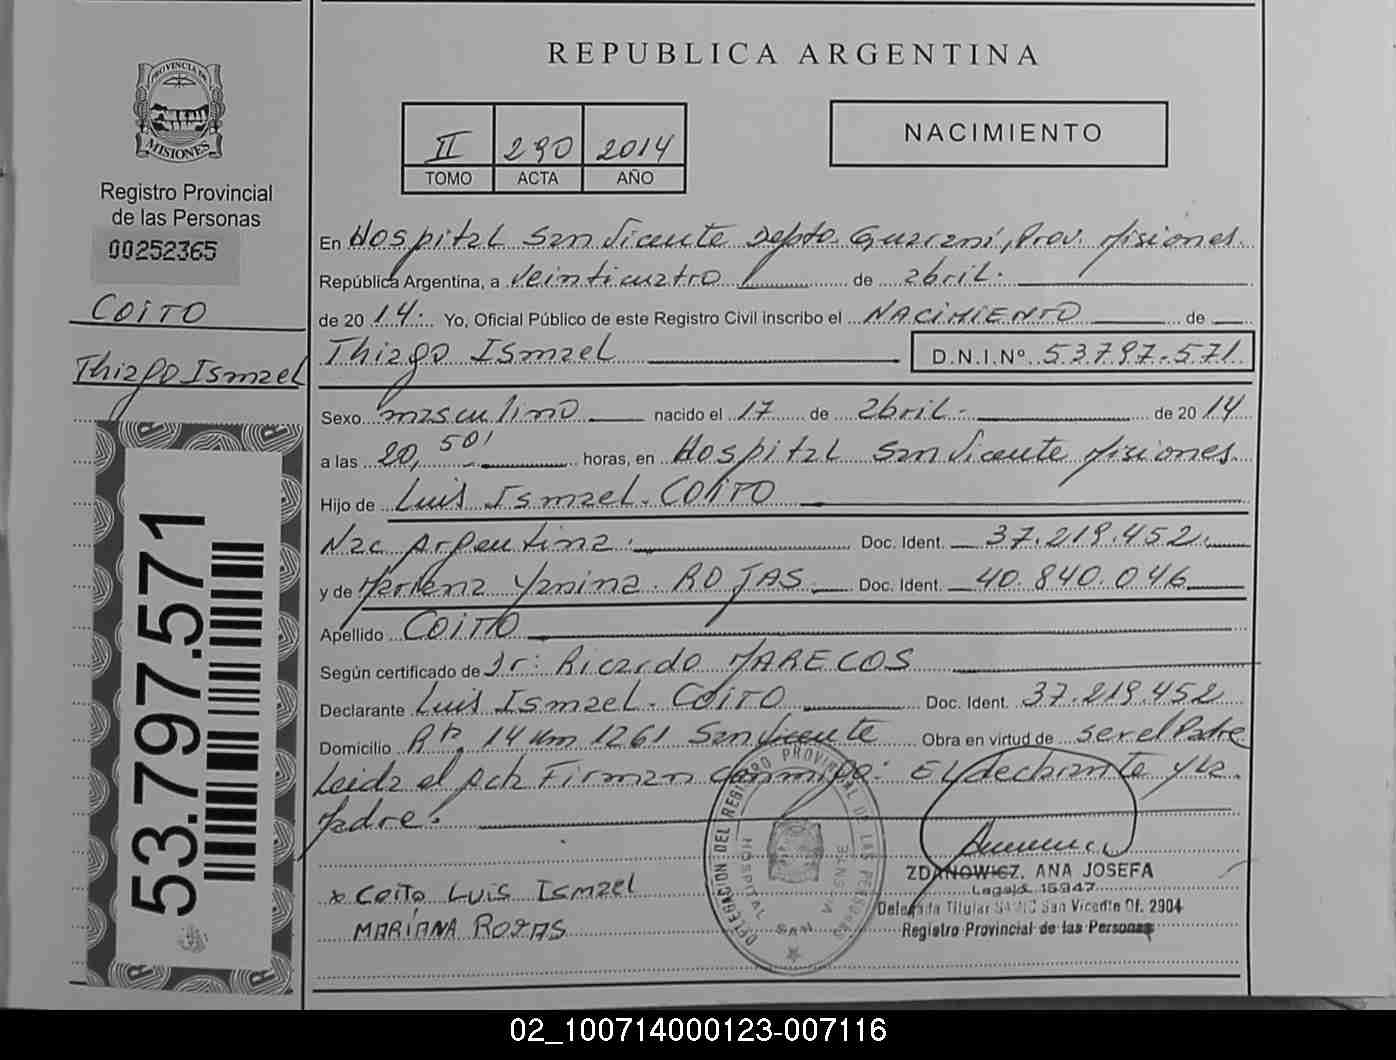 PROVINCIA DE
MISIONES
Registro Provincial
de las Personas
00252365
COITO
Thiago Ismael
53.797.571
REPUBLICA ARGENTINA
II 290 2014
TOMO ACTA AÑO
NACIMIENTO
En Hospital San Vicente Depto. Guaraní, Prov. Misiones.
República Argentina, a veinticuatro de abril.
de 2014. Yo, Oficial Público de este Registro Civil inscribo el NACIMIENTO de
Thiago Ismael D.N.I.Nº 53.797.571
Sexo masculino nacido el 17 de abril. de 2014
a las 20,50' horas, en Hospital San Vicente Misiones.
Hijo de Luis Ismael. COITO
Nac Argentina. Doc. Ident. 37.219.452.
y de Yanina. ROJAS Doc. Ident. 40.840.046
Apellido COITO
Según certificado de Dr: Ricardo MARECOS
Declarante Luis Ismael. COITO Doc. Ident. 37.219.452
Domicilio 14 Km 1261 San Vicente Obra en virtud de ser el Padre
Leida el Acta Firman conmigo: El declarante y la
Madre.
x Coito Luis Ismael
MARIANA ROJAS
DELEGACION DEL REGISTRO PROVINCIAL DE LAS PERSONAS
HOSPITAL SAN VICENTE
ZDANOWICZ. ANA JOSEFA
Legajo 15947
Delegada Titular San Vicente Of. 2904
Registro Provincial de las Personas
02_100714000123-007116